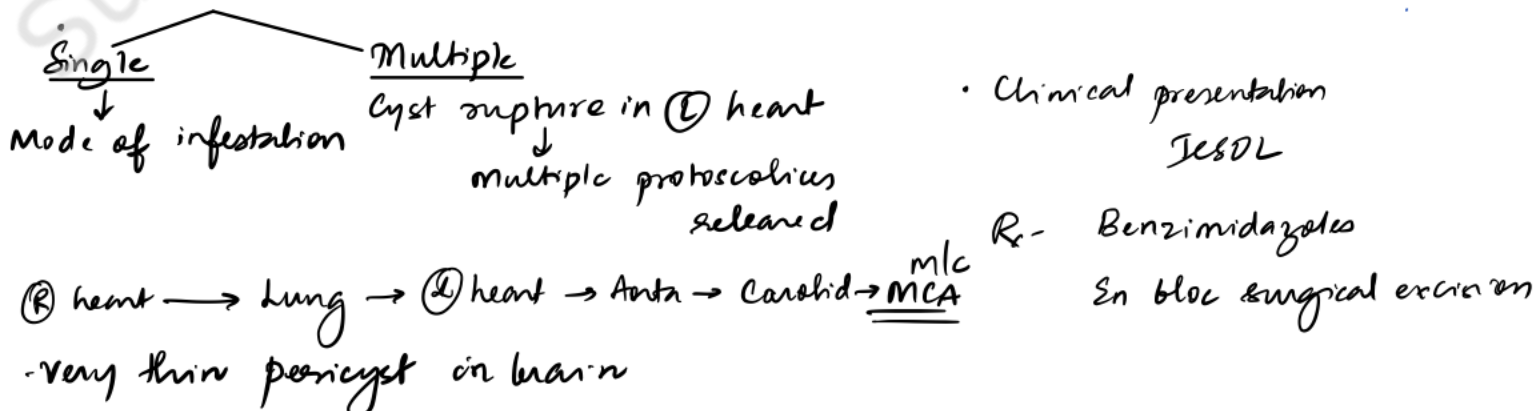 Single
↓
Mode of infestation
Multiple
Cyst rupture in Ⓛ heart
↓
Multiple protoscolices
released
Ⓡ heart → Lung → Ⓛ heart → Aorta → Carotid → MCA
m/c
- very thin pericyst in brain
• Clinical presentation
ICSOL
Rx - Benzimidazoles
En bloc surgical excision